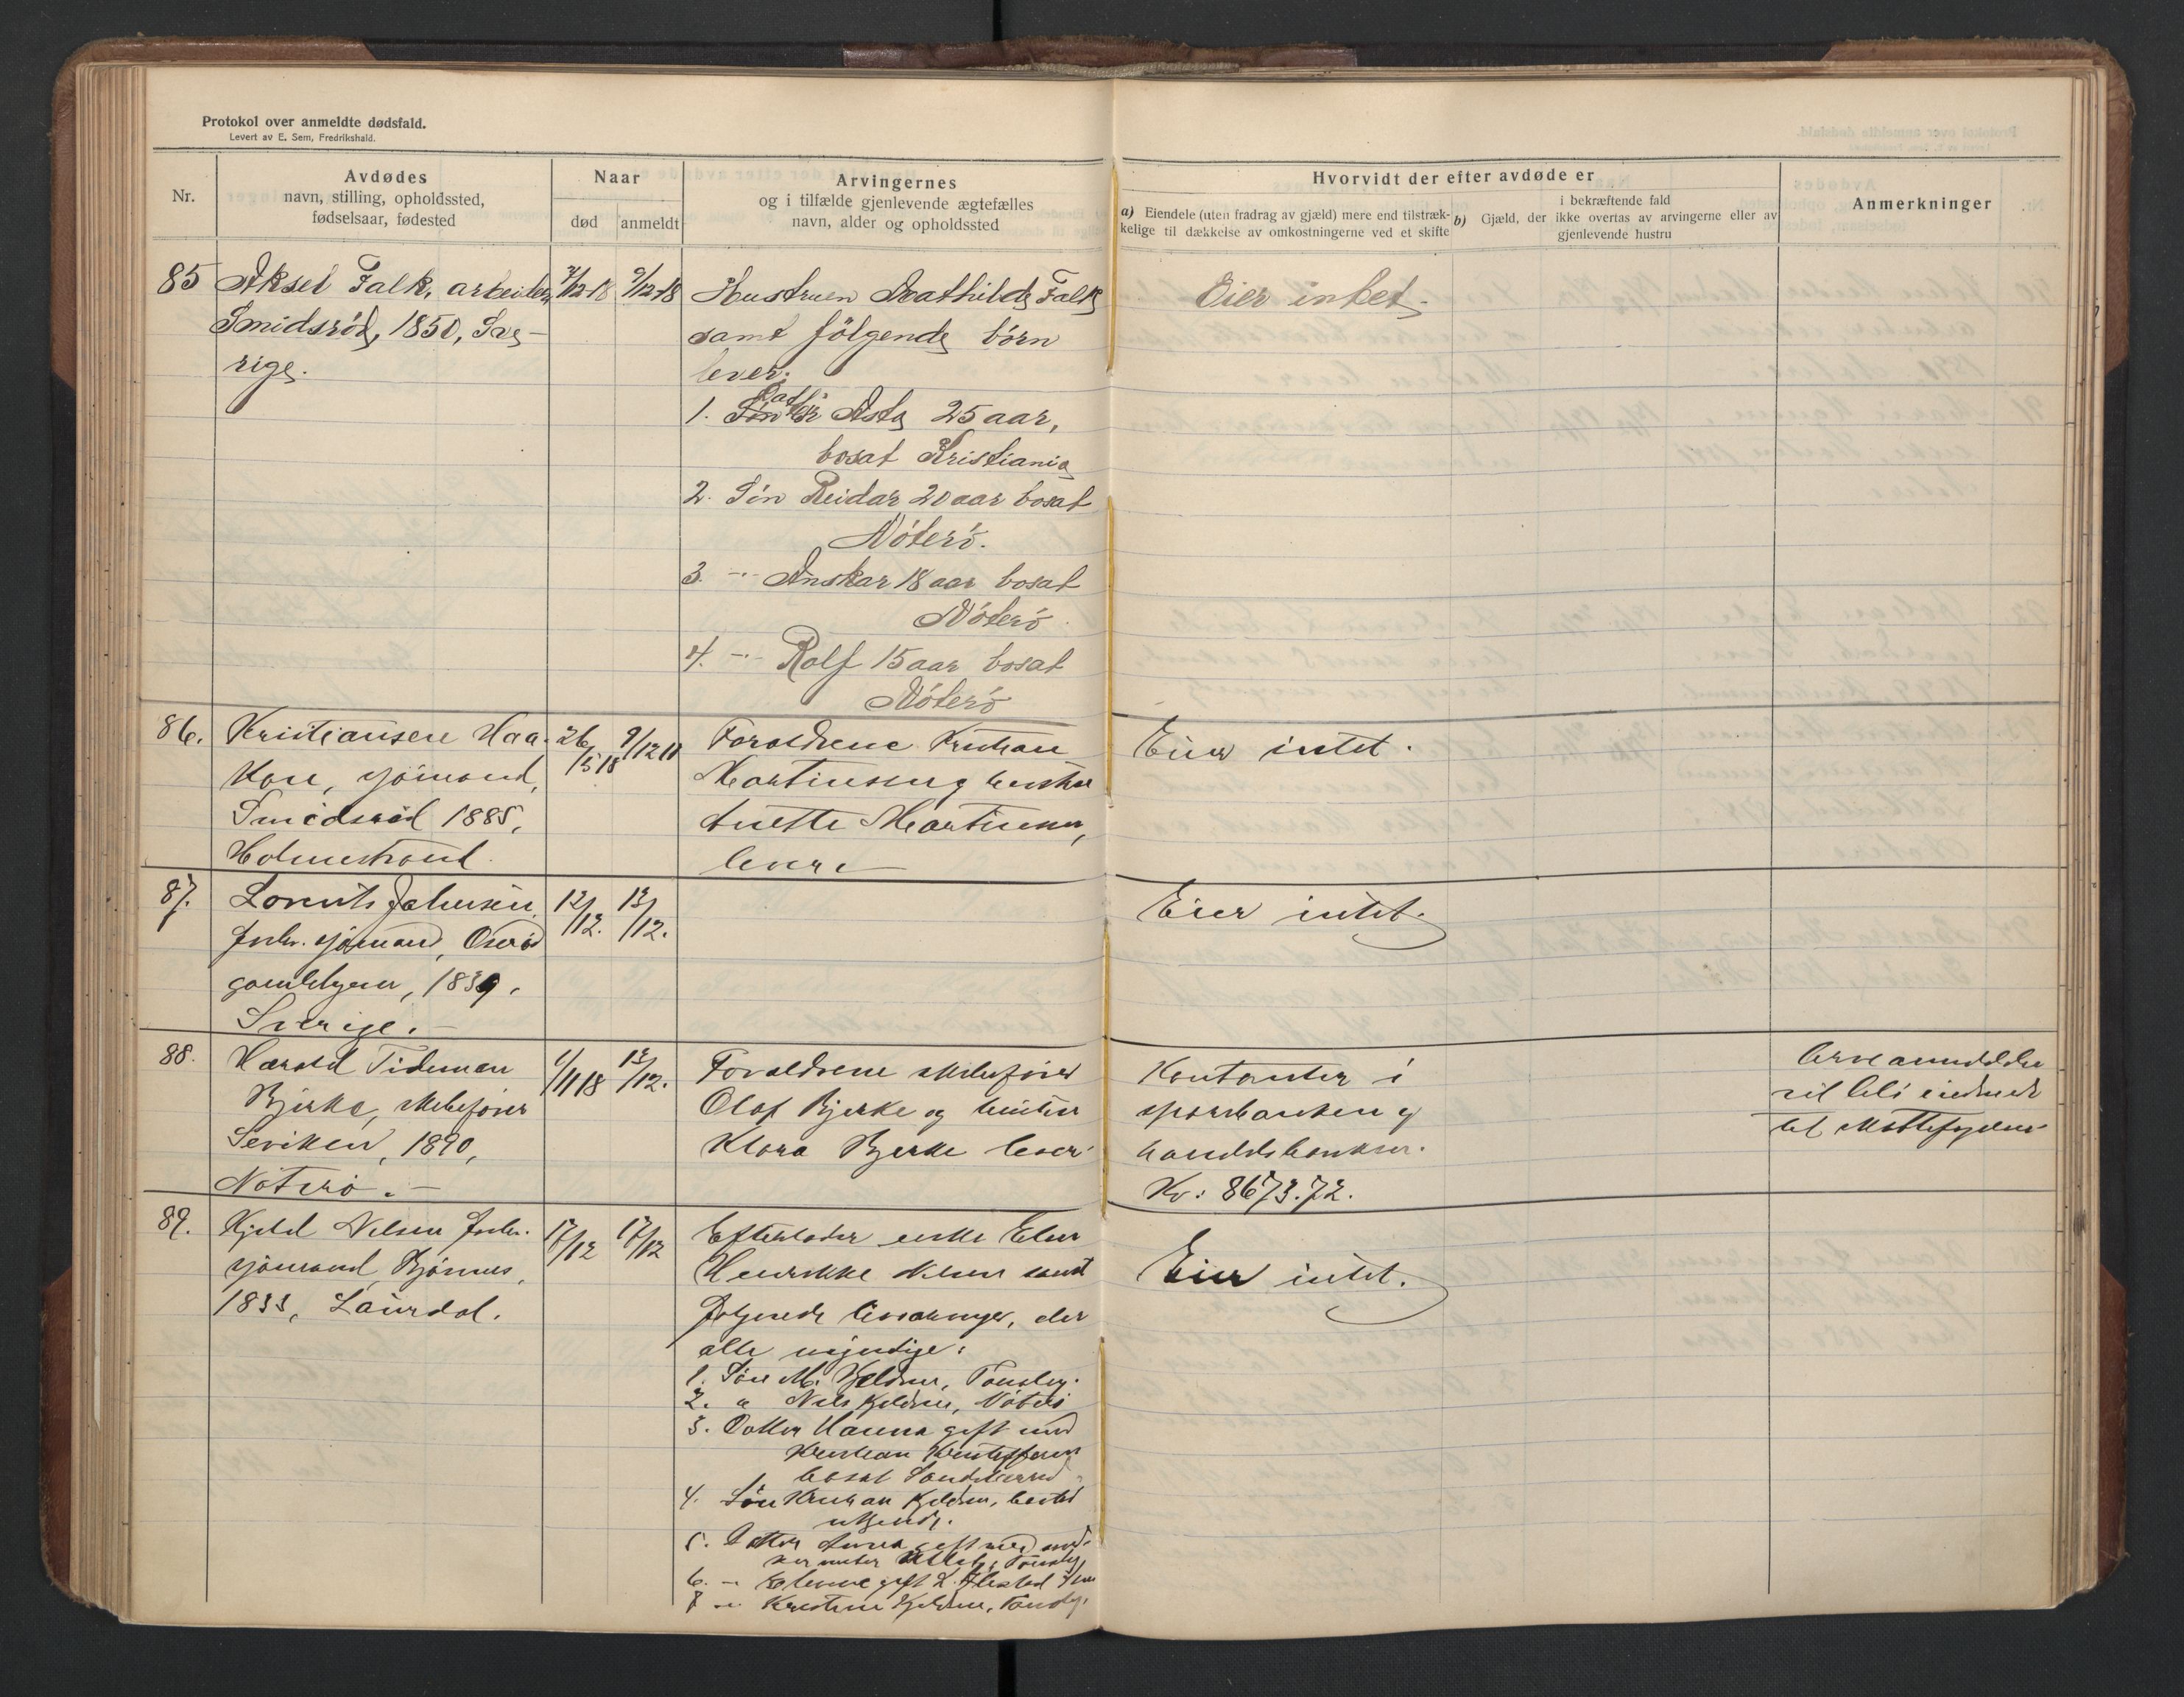 Protokol over anmeldte dødsfald.
Levert av E. Sem, Fredrikshald.
Nr.
Avdødes
navn, stilling, opholdssted,
fødselsaar, fødested
Naar
død
anmeldt
Arvingernes
og i tilfælde gjenlevende ægtefælles
navn, alder og opholdssted
Hvorvidt der efter avdøde er
a) Eiendele (uten fradrag av gjæld) mere end tilstræk-
kelige til dækkelse av omkostningerne ved et skifte
b) Gjæld, der
i bekræftende fald
ikke overtas av arvingerne eller av
gjenlevende hustru
Anmerkninger
85
Aksel Falk, arbeider,
Smidsrød, 1850, Sve-
rige.
7/12-18
9/12-18
Hustruen Mathilde Falk
samt følgende børn
lever:
1. Datter Asta 25 aar,
bosat Kristiania
2. Søn Reidar 20 aar bosat
Nøterø.
3. -"- Anskar 18 aar bosat
Nøterø.
4. -"- Rolf 15 aar bosat
Nøterø
Eier intet.
86.
Kristiansen Haa-
kon, sjømand,
Smidsrød 1885,
Holmestrand.
26/5 18
9/12 18
Forældrene Kristian
Martinsen og hustru
Anette Martinsen,
lever
Eier intet.
87.
Lorents Johansen,
forhv. sjømand,
1839.
Sverige.-
12/12.
13/12.
Eier intet.
88.
Harald Tideman
Bjerke, skibsfører
1890,
Nøterø.-
1/11 18
13/12.
Forældrene skibsfører
Olaf Bjerke og hustru
Klara Bjerke lever
Kontanter i
sparebanken og
handelsbanken.
Kr: 8673.72.
Arveanmeldelse
vil bli indsendt
til Skattefogden
89.
Kjeld Nilsen forhv.
sjømand, Bjørnnes,
1833, Laurdal.
17/12
17/12
Efterlader enke Elen
Henrikke Nilsen samt
følgende livsarvinger, der
alle myndige:
1. Søn M. Kjeldsen, Tønsberg.
2. " Nils Kjeldsen, Nøterø
3. Datter Hanna gift med
Kristian Kristoffersen
bosat
4. Søn Kristian Kjeldsen, bosted
ukjendt.
5. Datter Anna gift med
Tønsberg
6. -"- gift
7 -"- Kristine Kjeldsen, Tønsbg.
Eier intet.